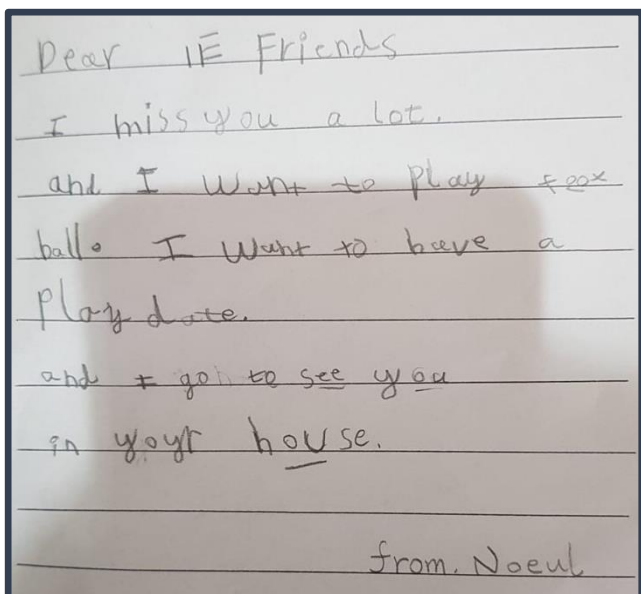 Dear 1E Friends
I miss you a lot.
and I want to play foox
ball. I want to have a
Play date.
and I go to see you
in yoyr house.
from. Noeul